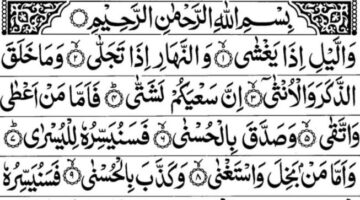 بِسْمِ اللهِ الرَّحْمٰنِ الرَّحِيْمِ
وَالَّيْلِ اِذَا يَغْشٰى ۙ﴿۱﴾ وَالنَّهَارِ اِذَا تَجَلّٰى ۙ﴿۲﴾ وَمَا خَلَقَ
الذَّكَرَ وَالْاُنْثٰٓى ۙ﴿۳﴾ اِنَّ سَعْيَكُمْ لَشَتّٰى ؕ﴿۴﴾ فَاَمَّا مَنْ اَعْطٰى
وَاتَّقٰى ۙ﴿۵﴾ وَصَدَّقَ بِالْحُسْنٰى ۙ﴿۶﴾ فَسَنُيَسِّرُهٗ لِلْيُسْرٰى ؕ﴿۷﴾
وَاَمَّا مَنْۢ بَخِلَ وَاسْتَغْنٰى ۙ﴿۸﴾ وَكَذَّبَ بِالْحُسْنٰى ۙ﴿۹﴾ فَسَنُيَسِّرُهٗ